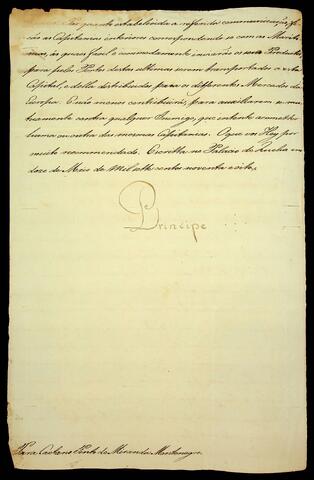 quanto estabelecida a referida communicação, fi-
cão as Capitanias interiores correspondendo se com as Mariti-
mas, ás quaes facil, e commodamente inviarão os seus Productos,
para pelos Portos destas ultimas serem transportados a esta
Capital, e della distribuidos para os differentes Mercados da
Europa. E não menos contribuirá, para auxiliarem se mu-
tuamente contra qualquer Inimigo, que intente accometter
huma ou outra das mesmas Capitanias. O que vos Hey por
muito recommendado. Escritta no Palacio de Queluz em
doze de Maio de Mil sette centos noventa e oito,
Principe
Para Caetano Pinto de Miranda Montenegro